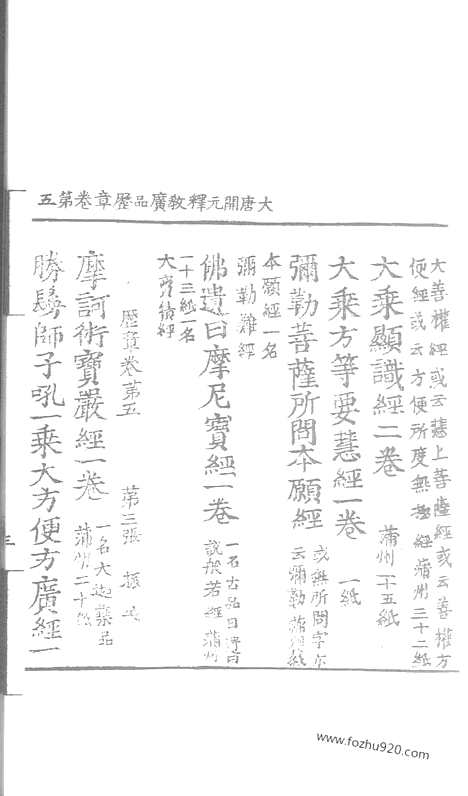 大唐開元釋教廣品歷章卷第五
大善權經或云慧上菩薩經或云善權方
便經或云方便所度無極經蒲州三十二紙
大乘顯識經二卷 蒲州二十五紙
大乘方等要慧經一卷 一紙
彌勒菩薩所問本願經 或無所問字亦
云彌勒菩薩
本願經一名
彌勒難經
佛遺日摩尼寶經一卷 一名古品曰遺日
說般若經蒲州
一十三紙一名
大寶積經
歷章卷第五 第三張
摩訶衍寶嚴經一卷 一名大迦葉品
蒲州二十紙
勝鬘師子吼一乘大方便方廣經一
三
www.fozhu920.com